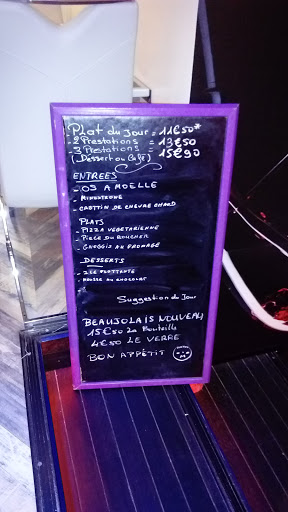 - Plat du Jour = 11€50*
- 2 Prestations = 13€50
- 3 Prestations = 15€90
(Dessert ou Café)
ENTREES
- OS A MOELLE
- MINESTRONE
- CROTTIN DE CHEVRE CHAUD
PLATS
- PIZZA VEGETARIENNE
- PIECE DU BOUCHER
- GNOCCHIS AU FROMAGE
DESSERTS
- ILE FLOTTANTE
- MOUSSE AU CHOCOLAT
Suggestion du Jour
BEAUJOLAIS NOUVEAU
15€50 La Bouteille
4€50 LE VERRE
BON APPÉTIT